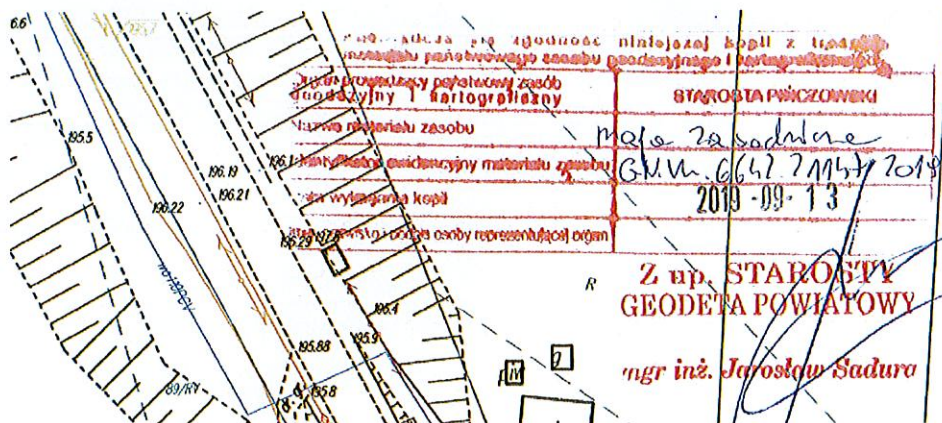 6.6
195.5
196.19
196.21
196.22
196.1
196.29
195.4
195.9
195.88
195.8
89/RY
R
J
IV
zgodność niniejszej kopii z
materiału państwowego zasobu geodezyjnego i kartograficznego
Organ prowadzący państwowy zasób
geodezyjny i kartograficzny
STAROSTA PIŃCZOWSKI
Nazwa materiału zasobu
mapa zasadnicza
Identyfikator ewidencyjny materiału zasobu
2019 -09- 13
wykonania kopii
i podpis osoby reprezentującej organ
Z up. STAROSTY
GEODETA POWIATOWY
mgr inż. Jarosław Sadura